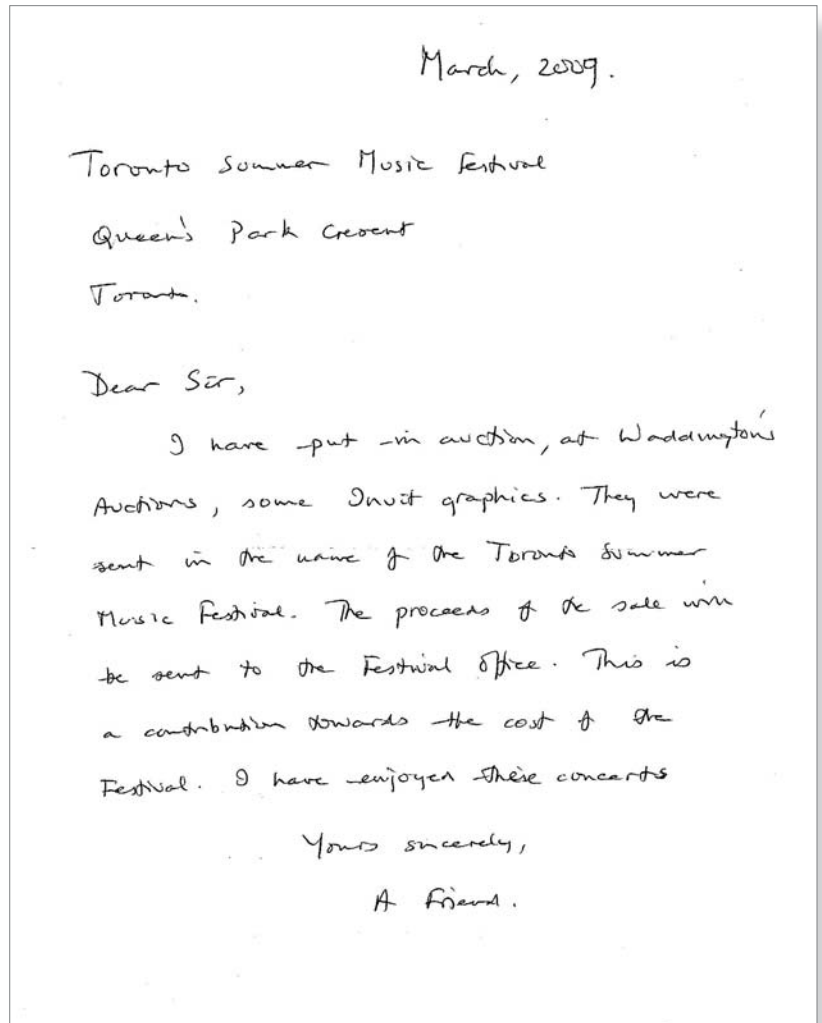 March, 2009.
Toronto Summer Music Festival
Queen's Park Cresent
Toronto.
Dear Sir,
I have put in auction, at Waddington's
Auctions, some Inuit graphics. They were
sent in the name of the Toronto Summer
Music Festival. The proceeds of the sale will
be sent to the Festival Office. This is
a contribution towards the cost of the
Festival. I have enjoyed these concerts
Yours sincerely,
A Friend.